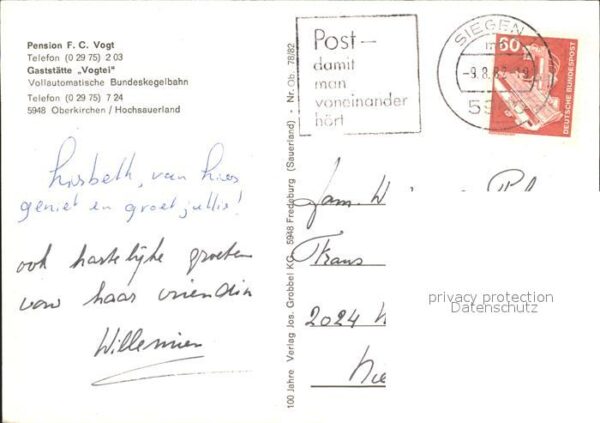 Pension F. C. Vogt
Telefon (0 29 75) 2 03
Gaststätte „Vogtei"
Vollautomatische Bundeskegelbahn
Telefon (0 29 75) 7 24
5948 Oberkirchen / Hochsauerland
Post –
damit
man
voneinander
hört
SIEGEN
-9.8.8
60
DEUTSCHE BUNDESPOST
100 Jahre Verlag Jos. Grobbel KG, 5948 Fredeburg (Sauerland) - Nr. Ob. 78/82
Lisbeth, van
geniet en groet jullie!
ook hartelijke groeten
van haar vriendin
Willemien
Fam. W
Frans
2024
privacy protection
Datenschutz